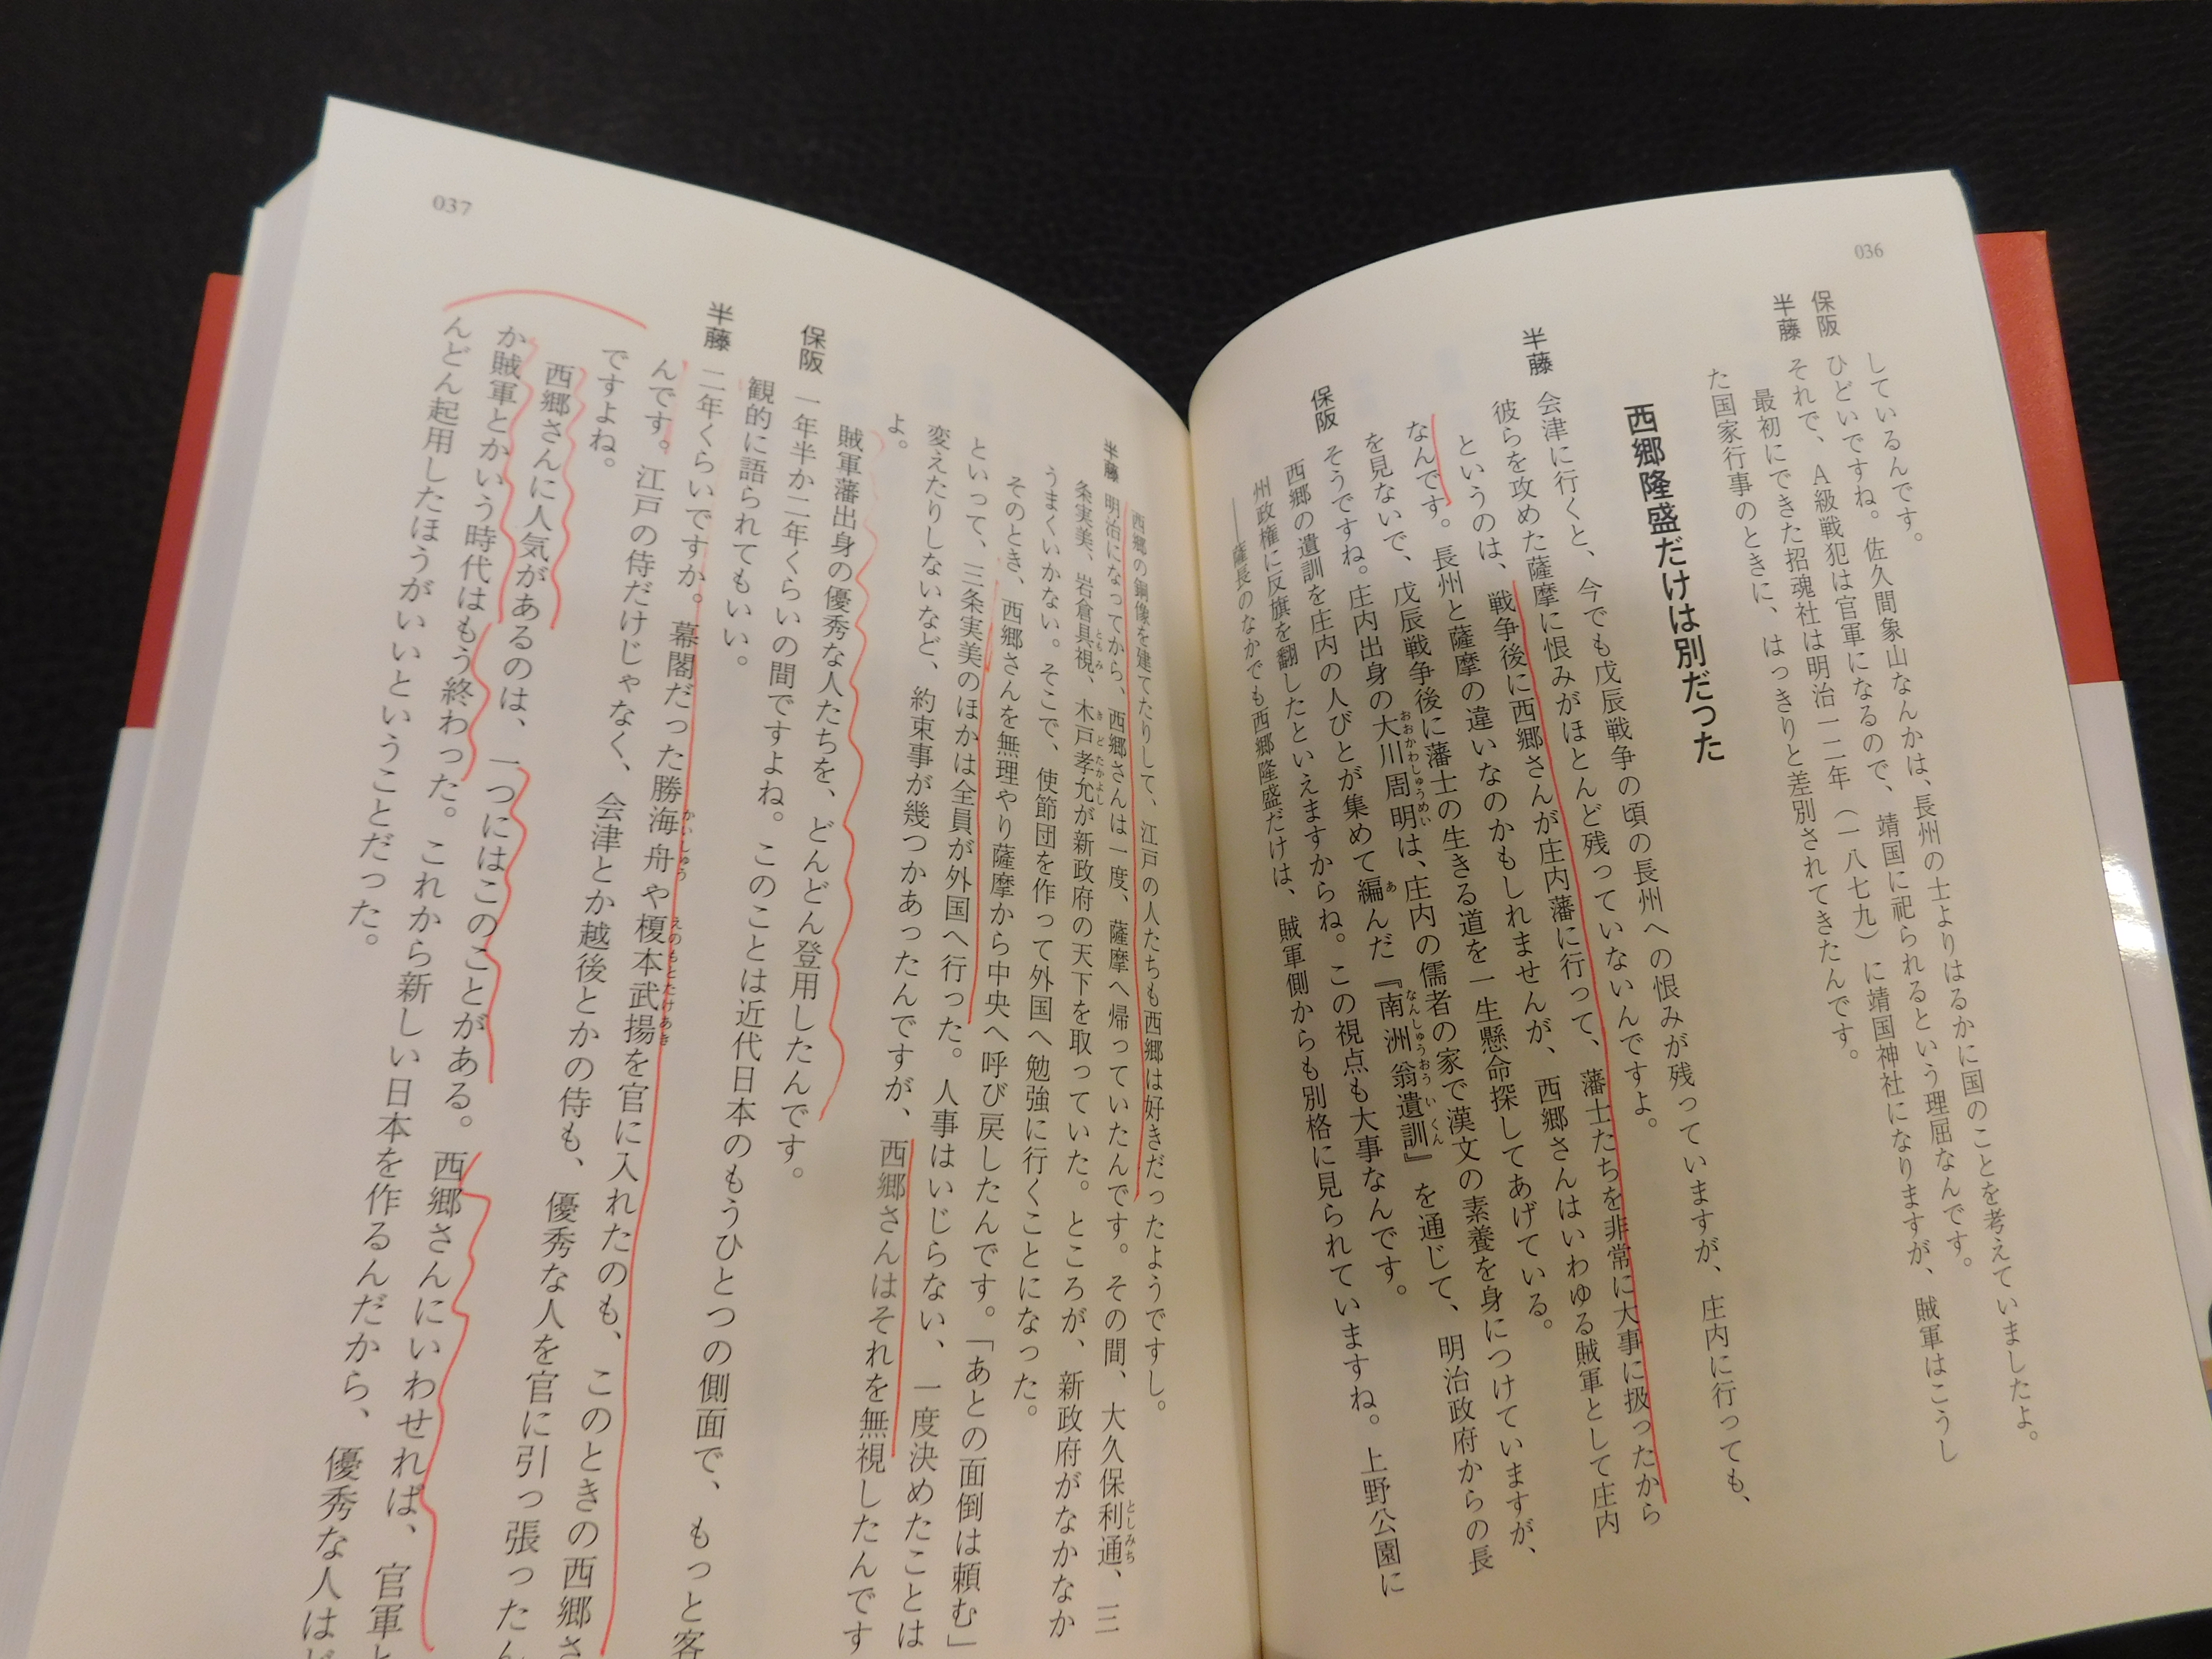 036
しているんです。佐久間象山なんかは、長州の士よりはるかに国のことを考えていましたよ。
保阪 ひどいですね。
半藤 それで、A級戦犯は官軍になるので、靖国に祀られるという理屈なんです。
最初にできた招魂社は明治一二年(一八七九)に靖国神社になりますが、賊軍はこうし
た国家行事のときに、はっきりと差別されてきたんです。
西郷隆盛だけは別だった
半藤 会津に行くと、今でも戊辰戦争の頃の長州への恨みが残っていますが、庄内に行っても、
彼らを攻めた薩摩に恨みがほとんど残っていないんですよ。
というのは、戦争後に西郷さんが庄内藩に行って、藩士たちを非常に大事に扱ったから
なんです。長州と薩摩の違いなのかもしれませんが、西郷さんはいわゆる賊軍として庄内
を見ないで、戊辰戦争後に藩士の生きる道を一生懸命探してあげている。
保阪 そうですね。庄内出身の大川周明は、庄内の儒者の家で漢文の素養を身につけていますが、
おおかわしゅうめい
西郷の遺訓を庄内の人びとが集めて編んだ『南洲翁遺訓』を通じて、明治政府からの長
あ
なんしゅうおういくん
州政権に反旗を翻したといえますからね。この視点も大事なんです。
――薩長のなかでも西郷隆盛だけは、賊軍側からも別格に見られていますね。上野公園に
西郷の銅像を建てたりして、江戸の人たちも西郷は好きだったようですし。
半藤 明治になってから、西郷さんは一度、薩摩へ帰っていたんです。その間、大久保利通、三
としみち
条実美、岩倉具視、木戸孝允が新政府の天下を取っていた。ところが、新政府がなかなか
ともみ
きどたかよし
うまくいかない。そこで、使節団を作って外国へ勉強に行くことになった。
そのとき、西郷さんを無理やり薩摩から中央へ呼び戻したんです。「あとの面倒は頼む」
といって、三条実美のほかは全員が外国へ行った。人事はいじらない、一度決めたことは
変えたりしないなど、約束事が幾つかあったんですが、西郷さんはそれを無視したんです
よ。
賊軍藩出身の優秀な人たちを、どんどん登用したんです。
保阪 一年半か二年くらいの間ですよね。このことは近代日本のもうひとつの側面で、もっと客
観的に語られてもいい。
半藤 二年くらいですか。幕閣だった勝海舟や榎本武揚を官に入れたのも、このときの西郷さ
かいしゅう
えのもとたけあき
んです。江戸の侍だけじゃなく、会津とか越後とかの侍も、優秀な人を官に引っ張ったん
ですよね。
西郷さんに人気があるのは、一つにはこのことがある。西郷さんにいわせれば、官軍と
か賊軍とかいう時代はもう終わった。これから新しい日本を作るんだから、優秀な人はど
んどん起用したほうがいいということだった。
037